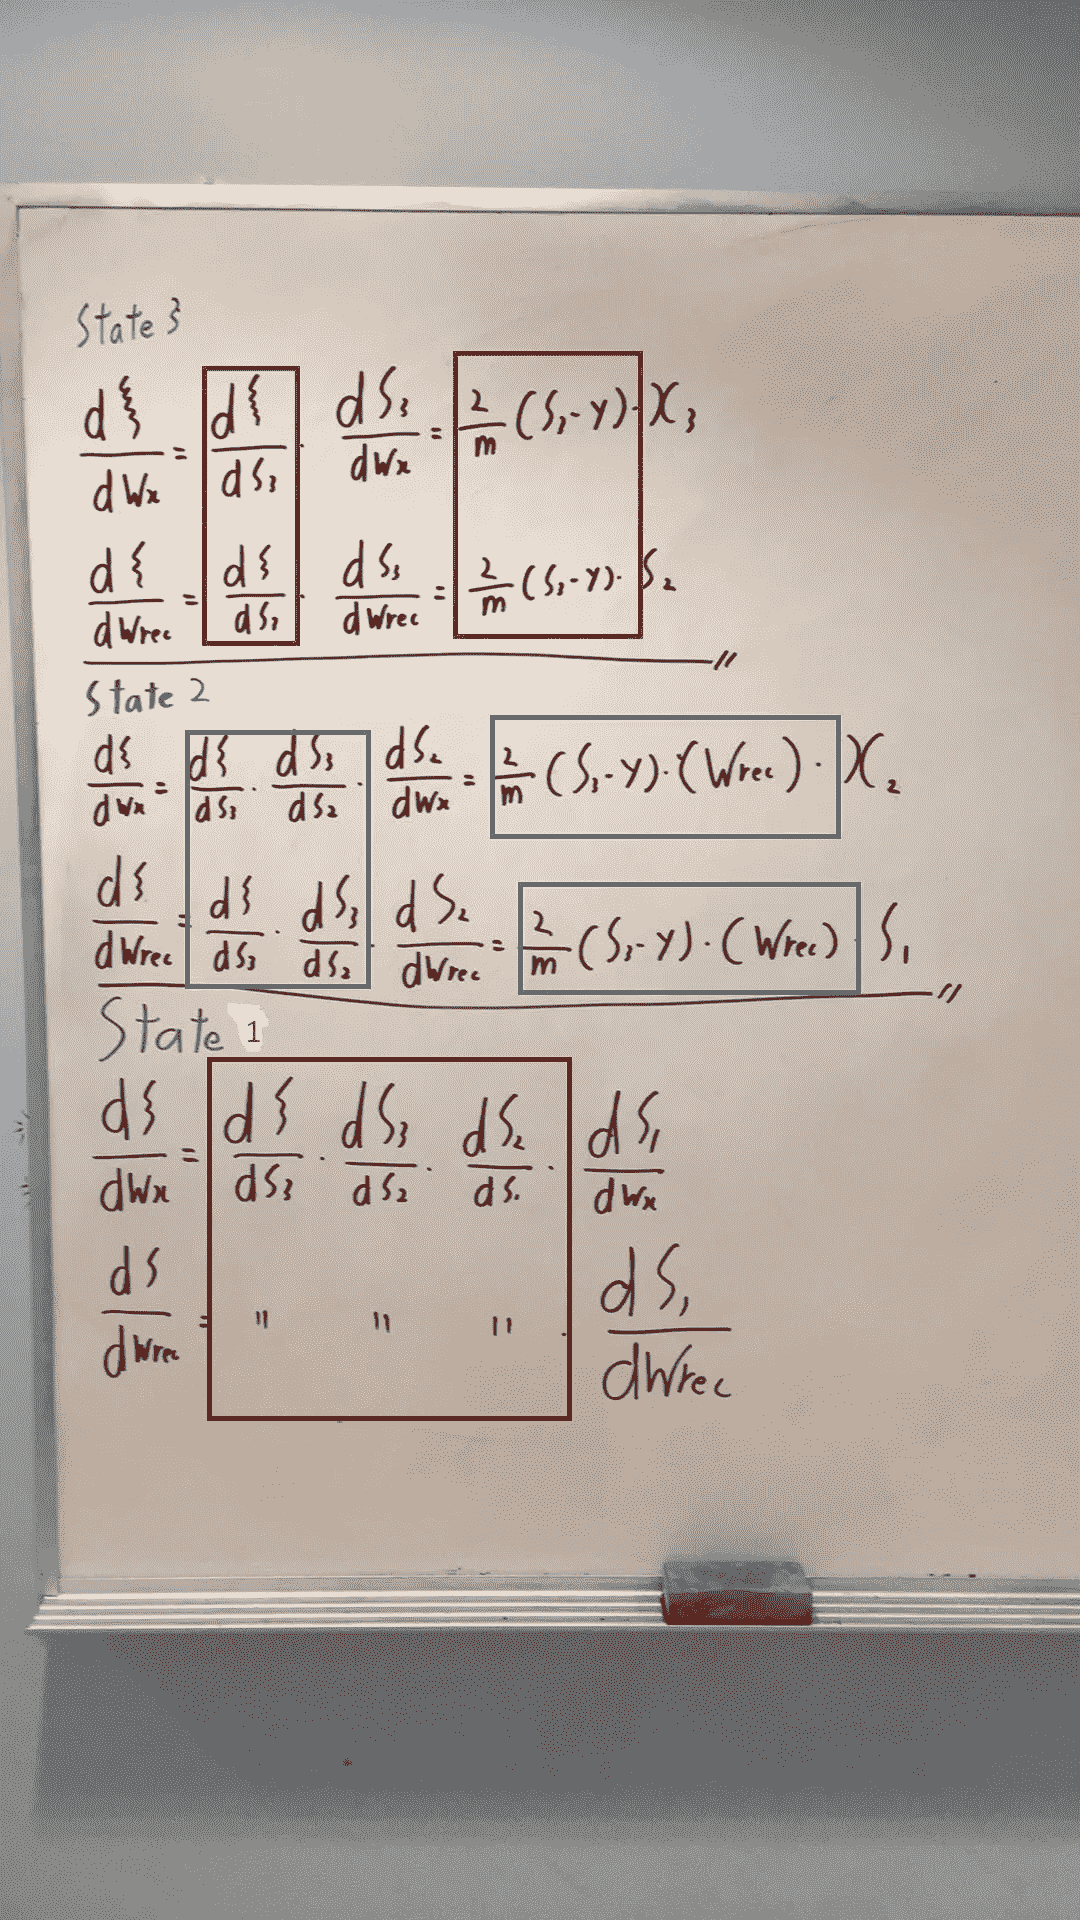 State 3
dξ/dWx = dξ/dS3 · dS3/dWx = 2/m (S3-Y) · X3
dξ/dWrec = dξ/dS3 · dS3/dWrec = 2/m (S3-Y) · S2
State 2
dξ/dWx = dξ/dS3 · dS3/dS2 · dS2/dWx = 2/m (S3-Y) · (Wrec) · X2
dξ/dWrec = dξ/dS3 · dS3/dS2 · dS2/dWrec = 2/m (S3-Y) · (Wrec) S1
State 1
dξ/dWx = dξ/dS3 · dS3/dS2 · dS2/dS1 · dS1/dWx
dξ/dWrec = " " " · dS1/dWrec